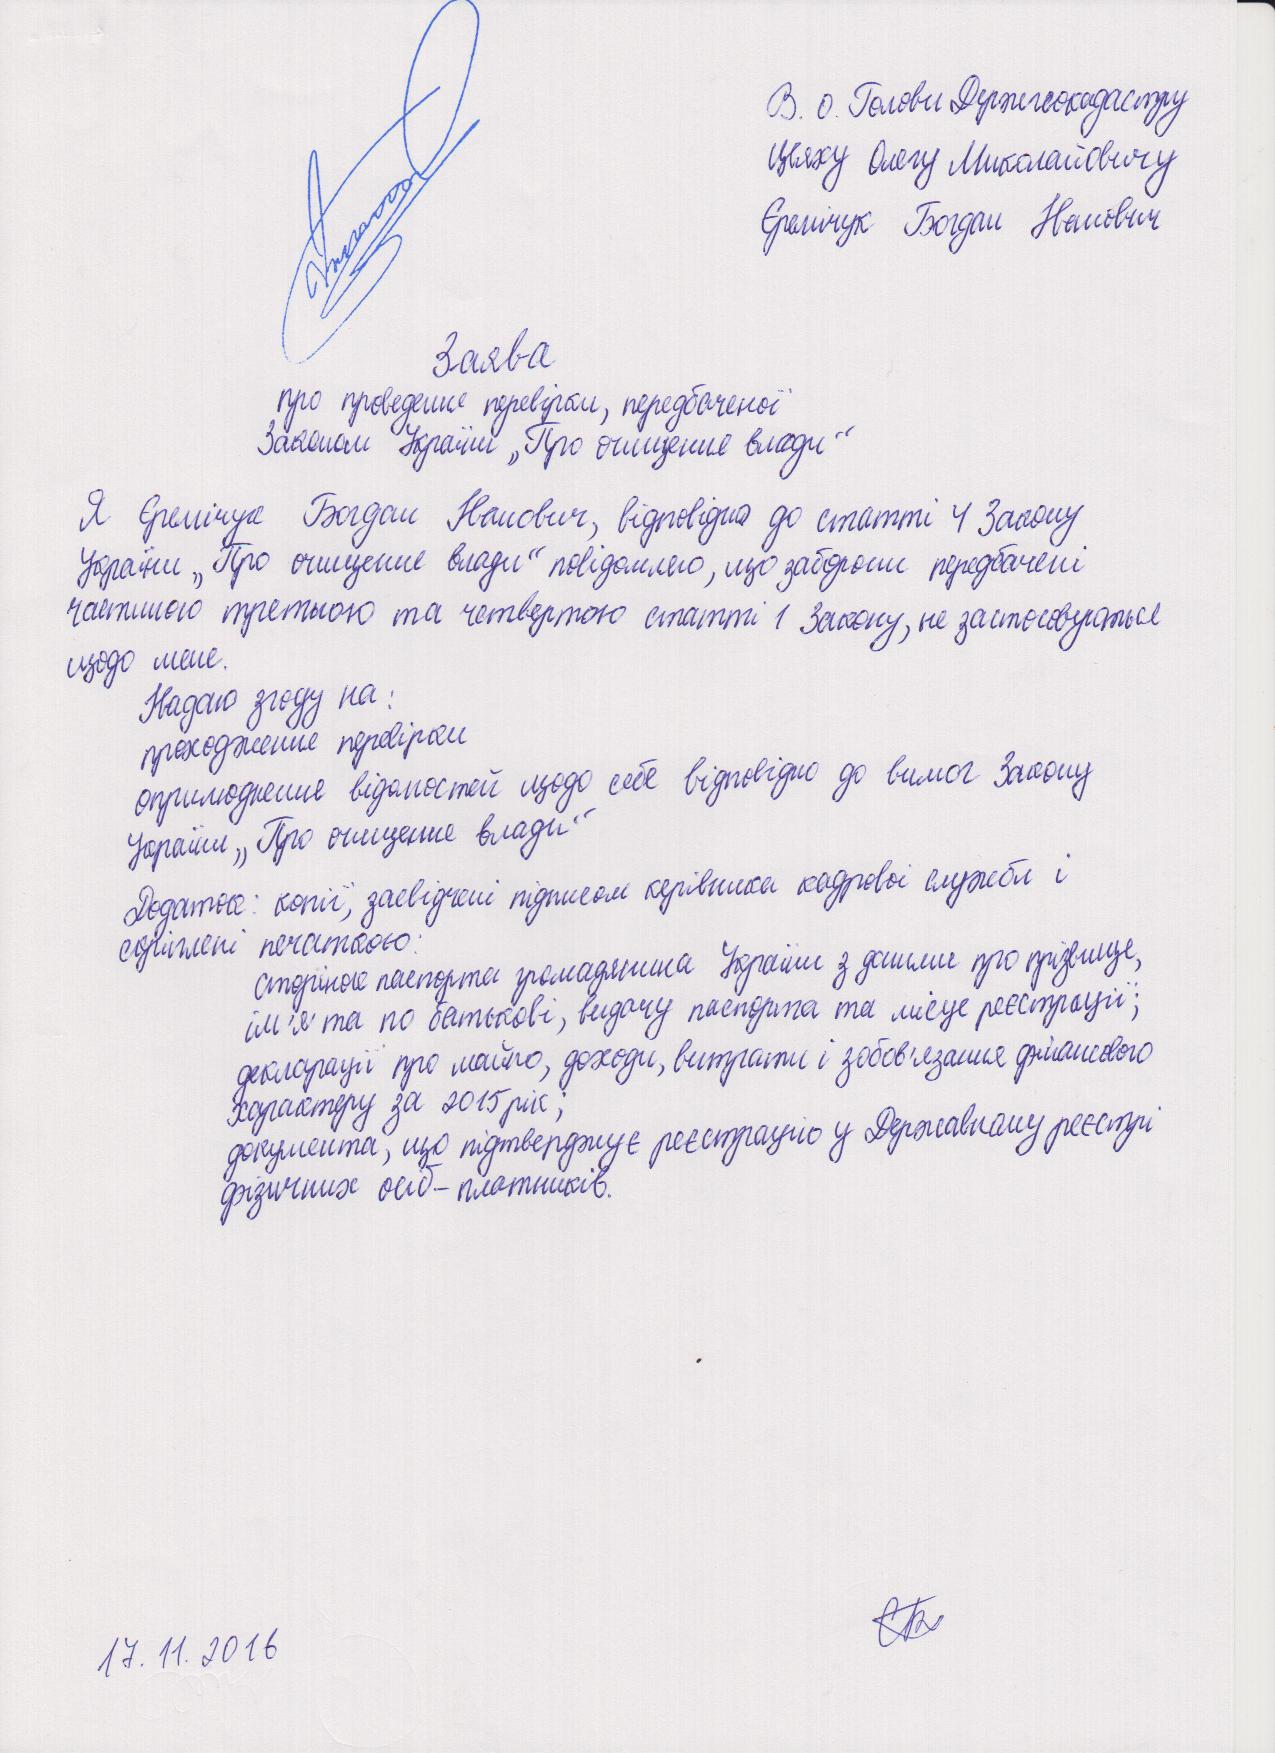 В. о. Голови Держгеокадастру
Цвяху Олегу Миколайовичу
Єремічук Богдан Іванович
Заява
про проведення перевірки, передбаченої
Законом України „Про очищення влади“
Я Єремічук Богдан Іванович, відповідно до статті 4 Закону
України „Про очищення влади“ повідомляю, що заборони передбачені
частиною третьою та четвертою статті 1 Закону, не застосовуються
щодо мене.
Надаю згоду на:
проходження перевірки
оприлюднення відомостей щодо себе відповідно до вимог Закону
України „Про очищення влади“
Додаток: копії, засвідчені підписом керівника кадрової служби і
скріплені печаткою:
сторінок паспорта громадянина України з даними про прізвище,
ім'я та по батькові, видачу паспорта та місце реєстрації;
декларації про майно, доходи, витрати і зобов'язання фінансового
характеру за 2015 рік;
документа, що підтверджує реєстрацію у Державному реєстрі
фізичних осіб – платників.
17.11.2016